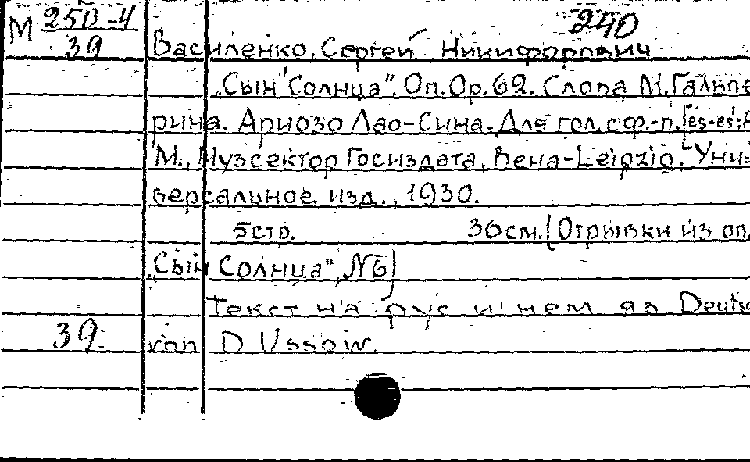 М 250-4 240
39 Василенко, Сергей Никифорович
„Сын Солнца". Оп. Ор. 62. Слова М. Гальпе
рина. Ариозо Лао-Сина. Для гол. с ф.-п. [es-es;
М., Музсектор Госиздата, Вена-Leipzig, "Уни
версальное изд., 1930.
5 стр. 36 см. (Отрывки из оп.
„Сын Солнца", N6)
Текст на рус и нем яз Deuts
39. von D. Ussow.